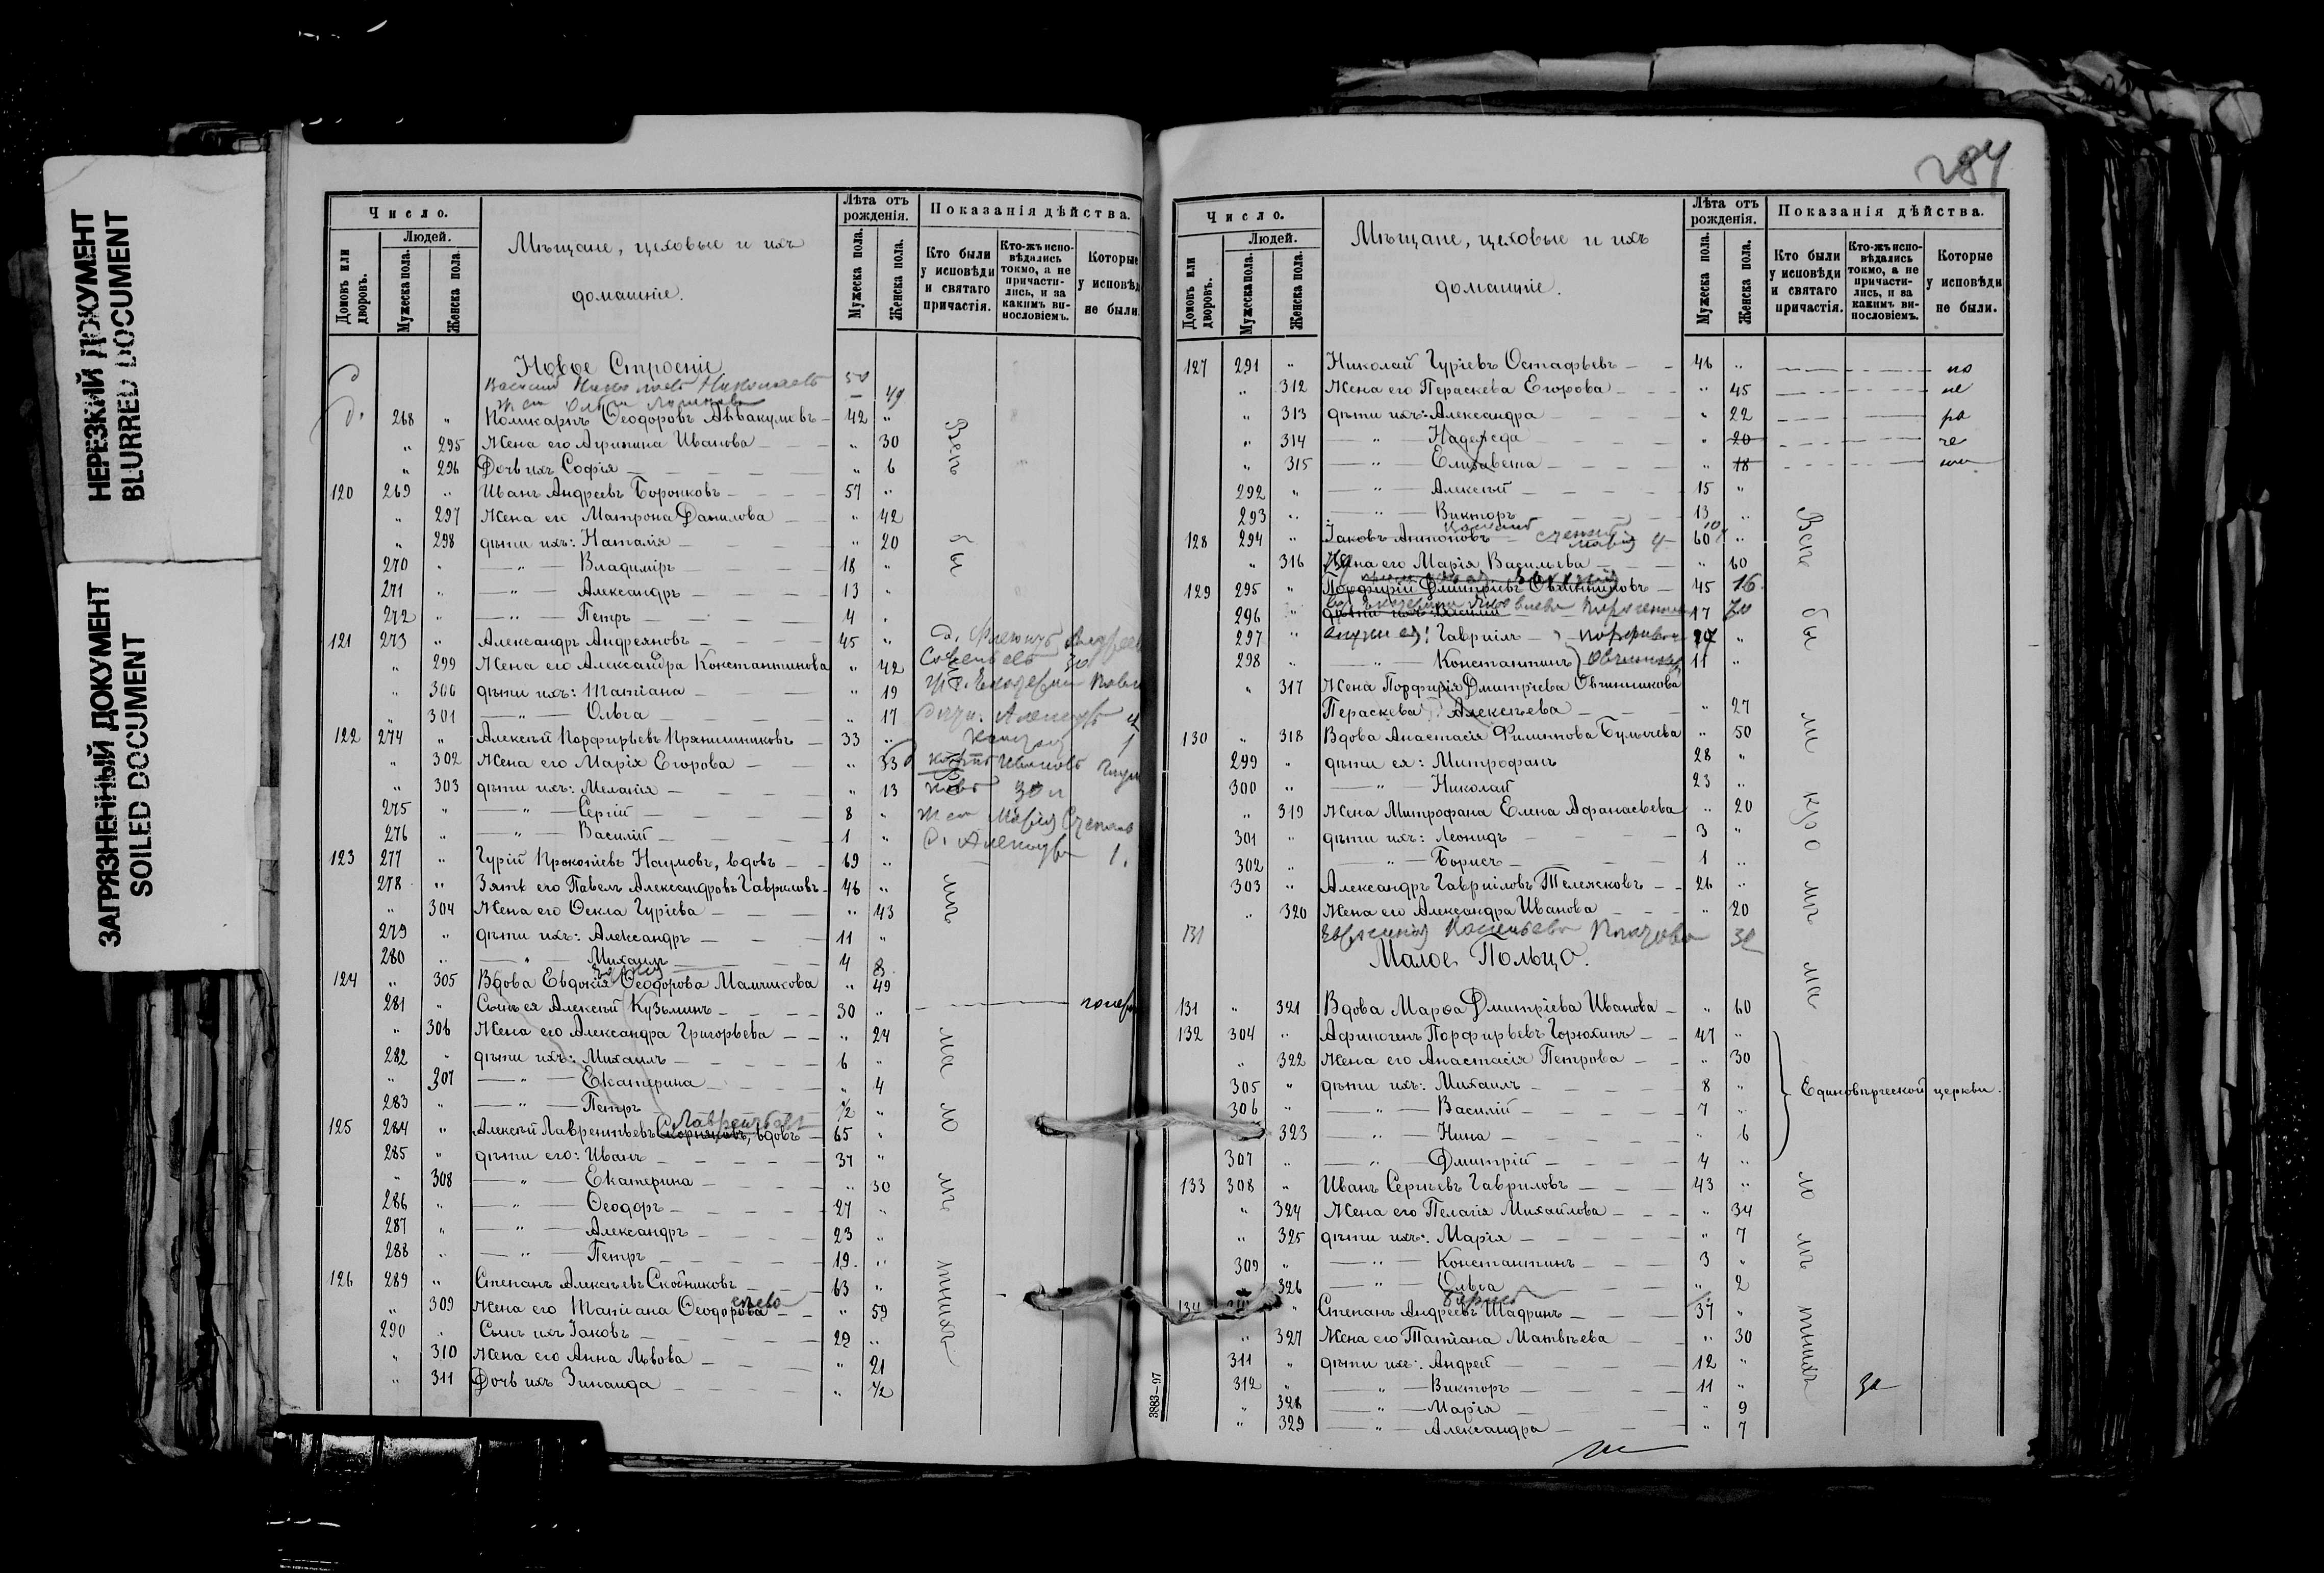 НЕРЕЗКИЙ ДОКУМЕНТ
BLURRED DOCUMENT
ЗАГРЯЗНЕННЫЙ ДОКУМЕНТ
SOILED DOCUMENT
Число.
Людей.
Домовъ или дворовъ.
Мужеска пола.
Женска пола.
Мѣщане, цеховые и ихъ
домашніе.
Лѣта отъ рожденія.
Мужеска пола.
Женска пола.
Показанія дѣйства.
Кто были у исповѣди и святаго причастія.
Кто-жъ исповѣдались токмо, а не причастились, и за какимъ винословіемъ.
Которые у исповѣд не были.
Новое Строеніе
Василий Николаевъ Николаевъ 50
49
268 " Поликарпъ Ѳеодоровъ Аввакумовъ 42 "
" 295 Жена его Агрипина Иванова " 30
" 296 Дочь ихъ Софія " 6
120 269 " Иванъ Андреевъ Воронковъ 57 "
" 297 Жена его Матрона Данилова " 42
" 298 дѣти ихъ: Наталія " 20
270 " — " — Владиміръ 18 "
271 " — " — Александръ 13 "
272 " — " — Петръ 4 "
121 273 " Александръ Андреяновъ 45 "
" 299 Жена его Александра Константинова " 42
" 300 дѣти ихъ: Татіана " 19
" 301 — " — Ольга " 17
122 274 " Алексѣй Порфирьевъ Прянишниковъ 33 "
" 302 Жена его Марія Егорова " 33
" 303 дѣти ихъ: Меланія " 13
275 " — " — Сергій 8 "
276 " — " — Василій 1 "
123 277 " Гурій Прокопіевъ Наумовъ, вдовъ 69 "
278 " Зять его Павелъ Александровъ Гавриловъ 46 "
" 304 Жена его Ѳекла Гуріева " 43
279 " дѣти ихъ: Александръ 11 "
280 " — " — Михаилъ 4
124 " 305 Вдова Евдокія Ѳеодорова Мамчикова " 49
281 " Сынъ ея Алексѣй Кузьминъ 30 "
" 306 Жена его Александра Григорьева " 24
282 " дѣти ихъ: Михаилъ 6 "
" 307 — " — Екатерина " 4
283 " — " — Петръ 1/2 "
Лаврентьев
125 284 " Алексѣй Лаврентьевъ Скорняковъ, вдовъ 65 "
285 " дѣти его: Иванъ 37 "
" 308 — " — Екатерина " 30
286 " — " — Ѳеодоръ 27 "
287 " — " — Александръ 23 "
288 " — " — Петръ 19 "
126 289 " Степанъ Алексѣевъ Скотниковъ 63 "
" 309 Жена его Татіана Ѳеодорова " 59
290 " Сынъ ихъ Іаковъ 22 "
" 310 Жена его Анна Львова " 21
" 311 Дочь ихъ Зинаида " 1/2
284
Число.
Людей.
Домовъ или дворовъ.
Мужеска пола.
Женска пола.
Мѣщане, цеховые и ихъ
домашніе.
Лѣта отъ рожденія.
Мужеска пола.
Женска пола.
Показанія дѣйства.
Кто были у исповѣди и святаго причастія.
Кто-жъ исповѣдались токмо, а не причастились, и за какимъ винословіемъ.
Которые у исповѣди не были.
127 291 " Николай Гуріевъ Остафьевъ 46 " по
" 312 Жена его Пераскева Егорова " 45 не
" 313 дѣти ихъ: Александра " 22 ра
" 314 — " — Надежда " 20 че
" 315 — " — Елизавета " 18
292 " — " — Алексѣй 15 "
293 " — " — Викторъ 13 "
128 294 " Іаковъ Антоновъ 60 "
" 316 Жена его Марія Васильева " 60
129 295 " Порфирій Димитріевъ Овчинниковъ 45 16
296 " дѣти ихъ: Василій 17 70
297 " Гавріилъ "
298 " — " — Константинъ 11 "
" 317 Жена Порфирія Дмитріева Овчинникова
Пераскева Алексѣева " 27
130 " 318 Вдова Анастасія Филиппова Булычева " 50
299 " дѣти ея: Митрофанъ 28 "
300 " — " — Николай 23 "
" 319 Жена Митрофана Елена Афанасьева " 20
301 " дѣти ихъ: Леонидъ 3 "
302 " — " — Борисъ 1 "
303 " Александръ Гавріиловъ Тележковъ 26 "
" 320 Жена его Александра Иванова " 20
131
Малое Польцо.
131 " 321 Вдова Марѳа Дмитріева Иванова " 60
132 304 " Афиногенъ Порфирьевъ Горюхинъ 47 "
" 322 Жена его Анастасія Петрова " 30
305 " дѣти ихъ: Михаилъ 8 "
306 " — " — Василій 7 "
323 — " — Нина " 6
307 " — " — Дмитрій 4 "
Единовѣрческой церкви.
133 308 " Иванъ Сергѣевъ Гавриловъ 43 "
" 324 Жена его Пелагія Михайлова " 34
" 325 дѣти ихъ: Марія " 7
309 " — " — Константинъ 3 "
326 — " — Ольга " 2
134 " Степанъ Андреевъ Шадринъ 37 "
" 327 Жена его Татіана Матвѣева " 30
311 " дѣти ихъ: Андрей 12 "
312 " — " — Викторъ 11 "
" 328 — " — Марія " 9
" 329 — " — Александра " 7
Всѣ бы ли кро мѣ ма ло лѣ тнихъ
3883—97